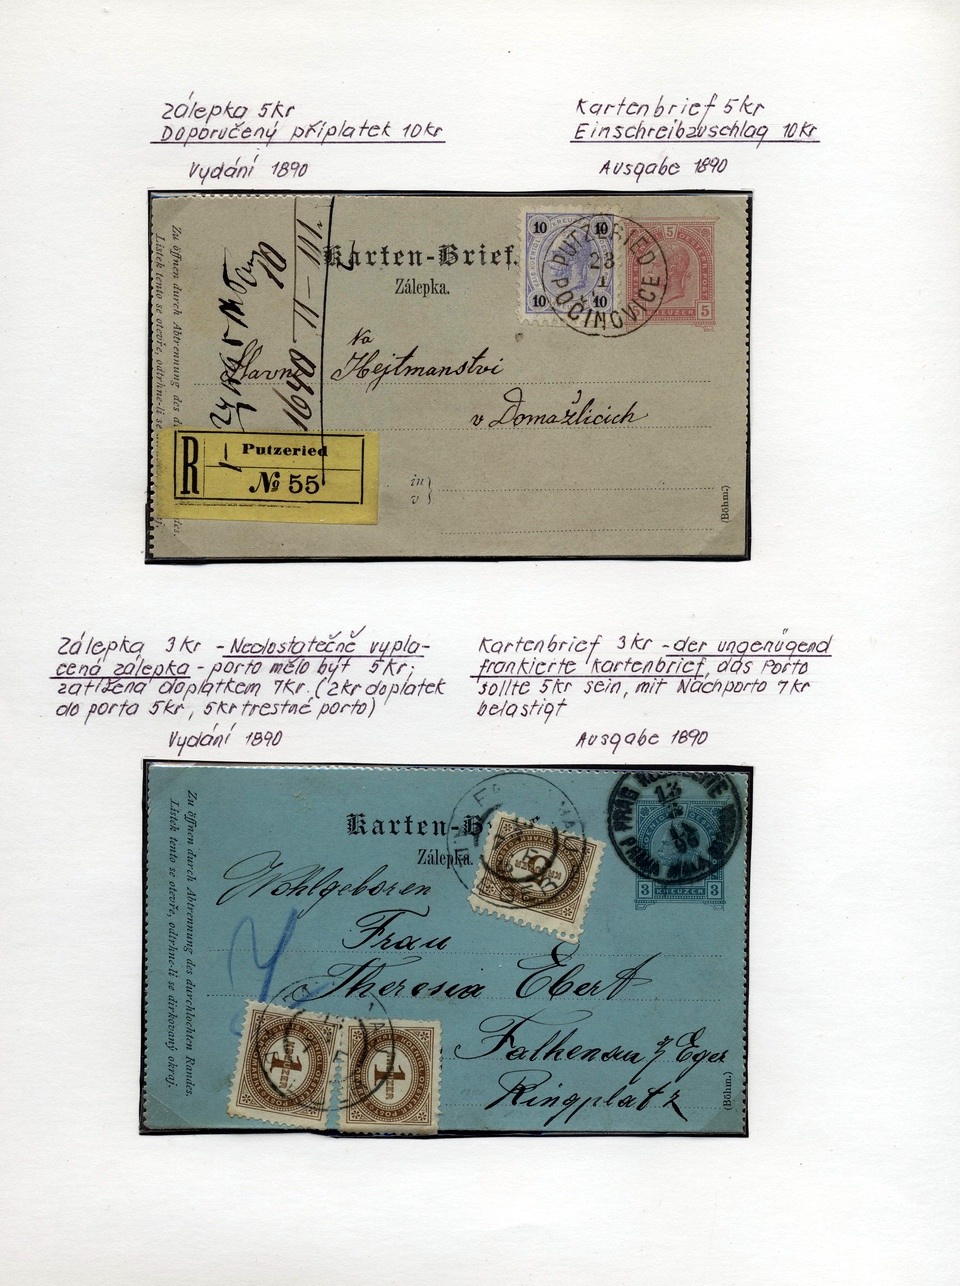 Zálepka 5kr
Doporučený příplatek 10kr
Vydání 1890
Kartenbrief 5kr
Einschreibzuschlag 10kr
Ausgabe 1890
Zu öffnen durch Abtrennung des
Listek tento se otevře, odtrhne-li se
des.
Karten-Brief.
Zálepka.
10 10
10 10
KREUZER
PUTZERIED
23
1
POČINOVICE
5
5
KREUZER
10
1640-11-111.
Slavné
Na
Hejtmanství
v Domažlicích
R
Putzeried
№ 55
in
v
(Böhm.)
Zálepka 3kr - Nedostatečně vypla-
cená zálepka - porto mělo být 5kr;
zatížena doplatkem 7kr. (2kr doplatek
do porta 5kr, 5kr trestné porto)
Vydání 1890
Kartenbrief 3kr - der ungenügend
frankierte Kartenbrief, das Porto
sollte 5kr sein, mit Nachporto 7kr
belastigt
Ausgabe 1890
Zu öffnen durch Abtrennung des durchlochten Randes.
Listek tento se otevře, odtrhne-li se dirkovaný okraj.
Karten-B
Zálepka.
5
PRAG KLEINSEITE
13
96
PRAHA MALÁ
3
KREUZER
3
Wohlgeboren
Frau
Theresia Ebert
7
Falkenau z/ Eger
Ringplatz
1
KREUZER
1
KREUZER
(Böhm.)